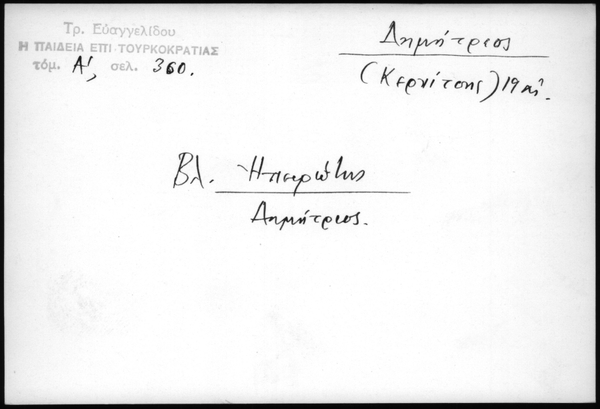 Τρ. Εὐαγγελίδου
Η ΠΑΙΔΕΙΑ ΕΠΙ ΤΟΥΡΚΟΚΡΑΤΙΑΣ
τόμ. Α', σελ. 360.
Δημήτριος
(Κερνίτσης) 19 αἰ.
Βλ. Ἠπειρώτης
Δημήτριος.